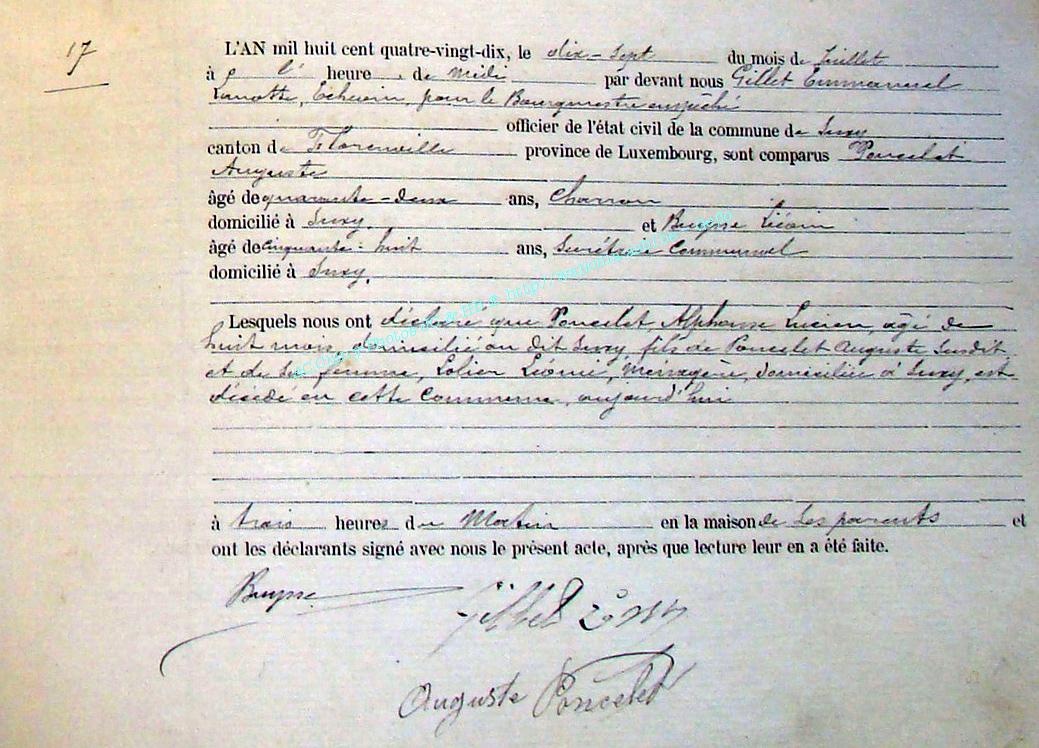 17
L'AN mil huit cent quatre-vingt-dix, le dix-sept du mois de Juillet
à l' heure de midi par devant nous Gillet Emmanuel
Lamotte, Echevin, pour le Bourgmestre empêché
officier de l'état civil de la commune de Suxy
canton de Florenville province de Luxembourg, sont comparus Poncelet
Auguste
âgé de quarante-deux ans, Charron
domicilié à Suxy. et Buysse
âgé de cinquante-huit ans, Secrétaire Communal
domicilié à Suxy.
Lesquels nous ont déclaré que Poncelet, Alphonse Lucien, âgé de
huit mois, domicilié au dit Suxy, fils de Poncelet Auguste susdit
et de sa femme, Lolier Léonie, Ménagère, domiciliée à Suxy, est
décédé en cette Commune, aujourd'hui
à trois heures du Matin en la maison de ses parents et
ont les déclarants signé avec nous le présent acte, après que lecture leur en a été faite.
Buysse
Gillet
Auguste Poncelet